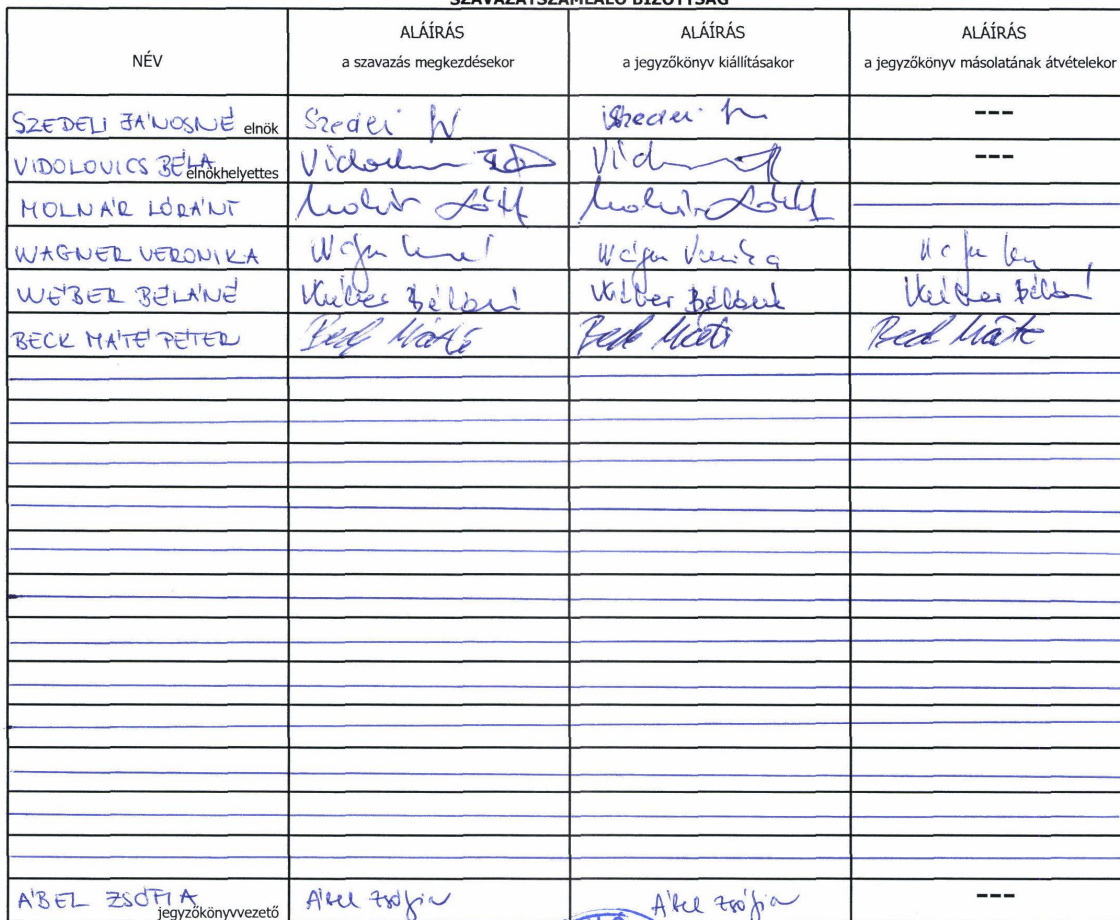 SZAVAZATSZÁMLÁLÓ BIZOTTSÁG
NÉV
ALÁÍRÁS
a szavazás megkezdésekor
ALÁÍRÁS
a jegyzőkönyv kiállításakor
ALÁÍRÁS
a jegyzőkönyv másolatának átvételekor
SZEDELI JÁNOSNÉ elnök ---
VIDOLOVICS BÉLA elnökhelyettes ---
MOLNÁR LÓRÁNT
WAGNER VERONIKA
WÉBER BÉLÁNÉ Wéber Béláné Wéber Béláné Wéber Béláné
BECK MÁTÉ PÉTER Beck Máté Beck Máté Beck Máté
ÁBEL ZSÓFIA jegyzőkönyvvezető Ábel Zsófia Ábel Zsófia ---